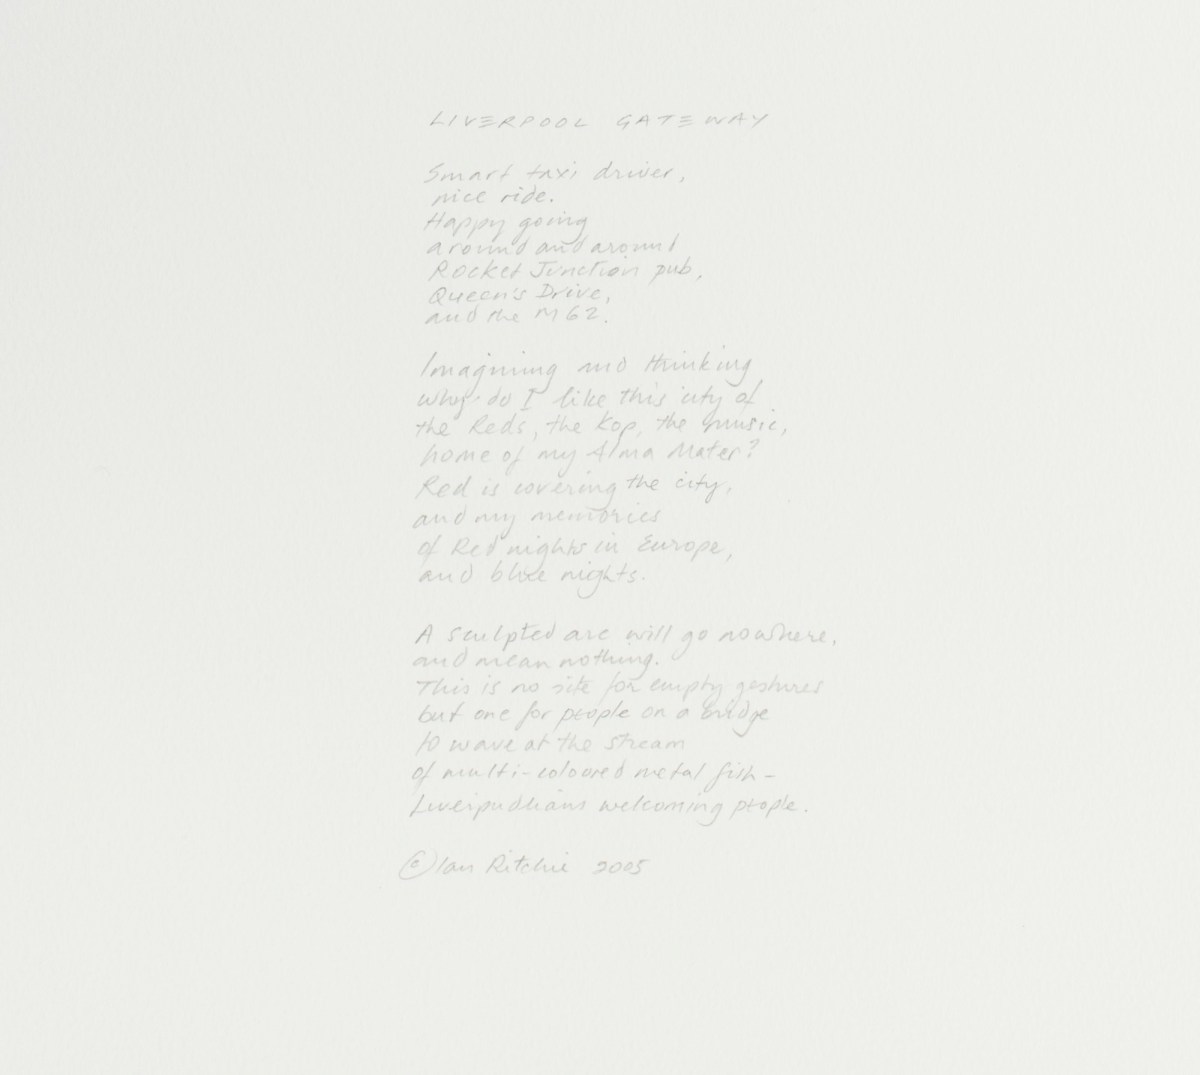 LIVERPOOL GATEWAY
Smart taxi driver,
nice ride.
Happy going
around and around
Rocket Junction pub,
Queen's Drive,
and the M62.
Imagining and thinking
why do I like this city of
the Reds, the Kop, the music,
home of my Alma Mater?
Red is covering the city,
and my memories
of Red nights in Europe,
and blue nights.
A sculpted arc will go nowhere,
and mean nothing.
This is no site for empty gestures
but one for people on a bridge
to wave at the stream
of multi-coloured metal fish -
Liverpudlians welcoming people.
© Ian Ritchie 2005